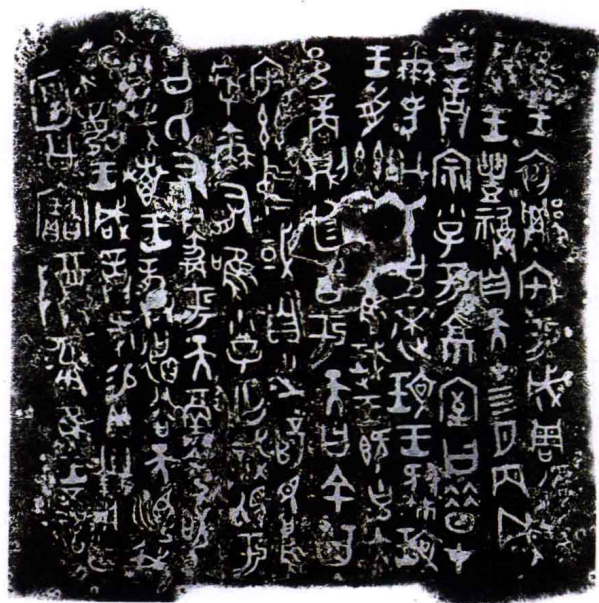 隹王初𨟻宅于成周復爯
珷王豊祼自天才四月丙戌
王誥宗小子于京室曰昔才
爾考公氏克逨玟王肆玟
王受茲珷王既克大
邑商則廷告于天曰余其
宅茲中或自之乂民烏
虖爾有唯小子亡識視于
公氏有爵于天徹令敬
享𢦏叀王龏德谷天順我
不每王咸誥𣄰易貝卅朋用乍
𢉩公寶尊彝隹王五祀